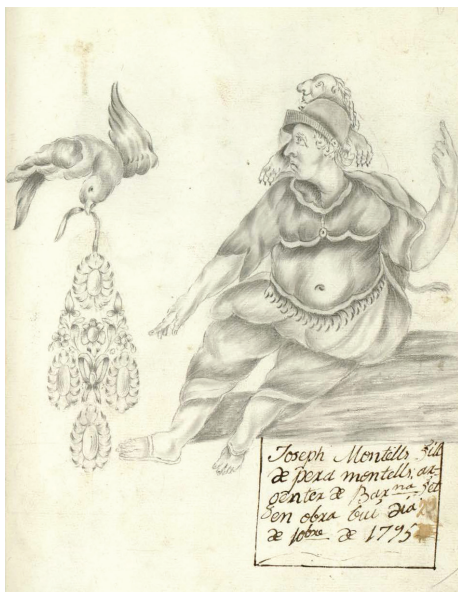 Joseph Montells fill
de pera montells ar-
genter de Barna fet
en obra vui dia
de 10bre de 1795